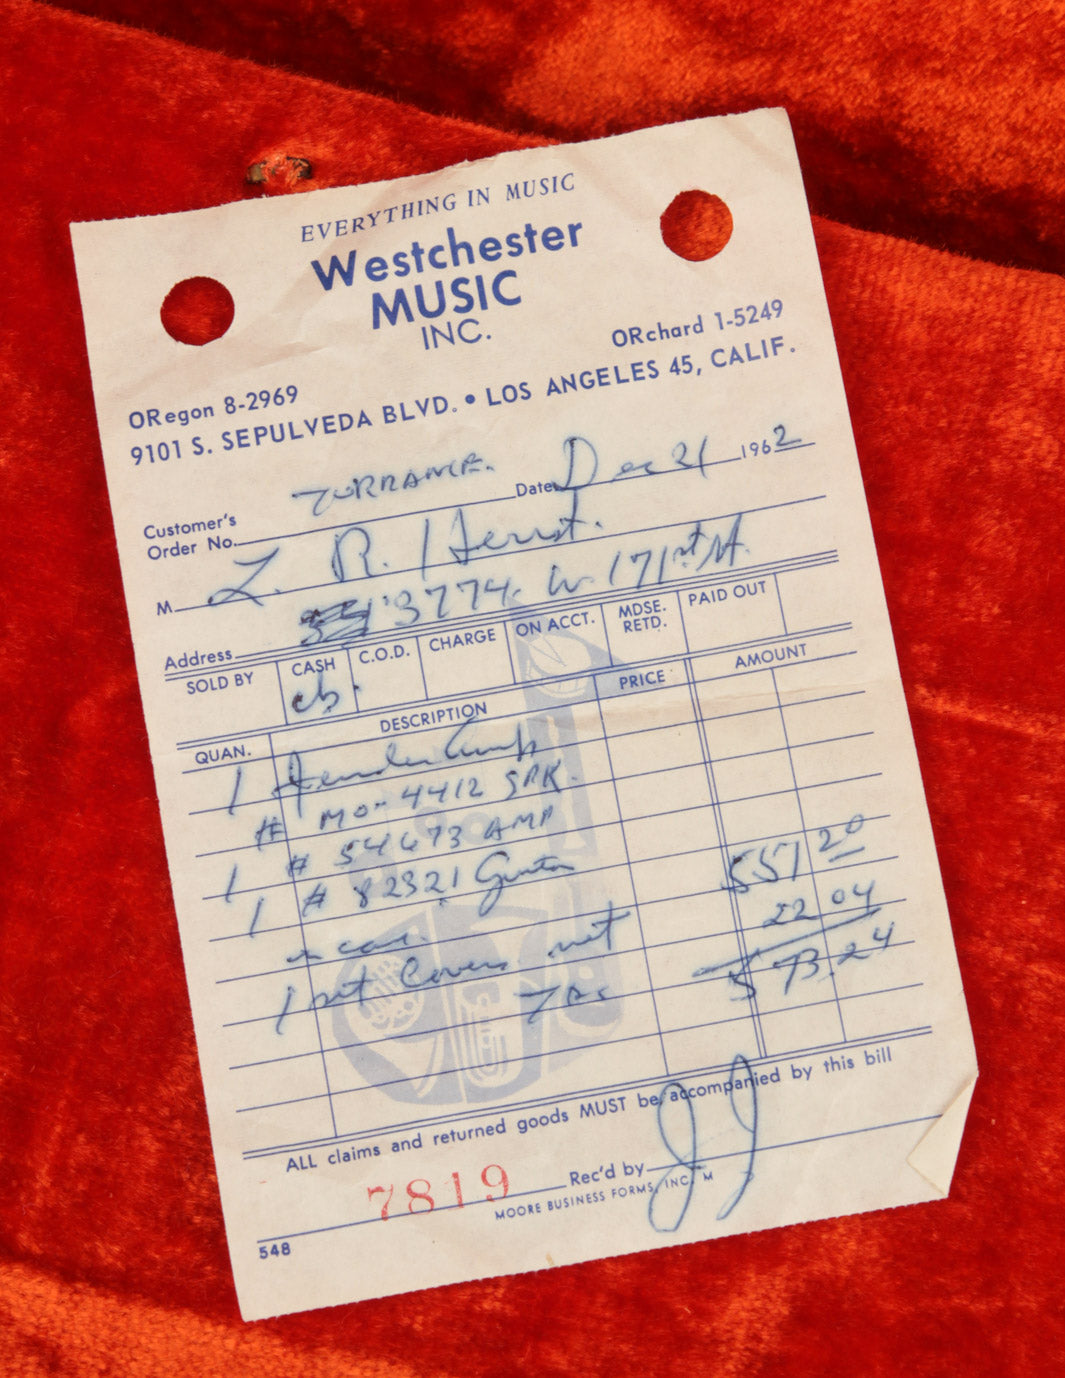 EVERYTHING IN MUSIC
Westchester
MUSIC
INC.
ORegon 8-2969 ORchard 1-5249
9101 S. SEPULVEDA BLVD. • LOS ANGELES 45, CALIF.
TORRANCE.
Customer's
Order No. Date Dec 21 1962
M L. R. Hurst.
Address 3774. W. 171st St.
SOLD BY CASH C.O.D. CHARGE ON ACCT. MDSE. RETD. PAID OUT
QUAN. DESCRIPTION PRICE AMOUNT
1 Fender Amp
# MO- 4412 SPK.
1 # 54673 AMP
1 # 82321 Guitar 551 20
in case. 22 04
1 set Covers net 573.24
ALL claims and returned goods MUST be accompanied by this bill
7819 Rec'd by JJ
MOORE BUSINESS FORMS, INC. M
548